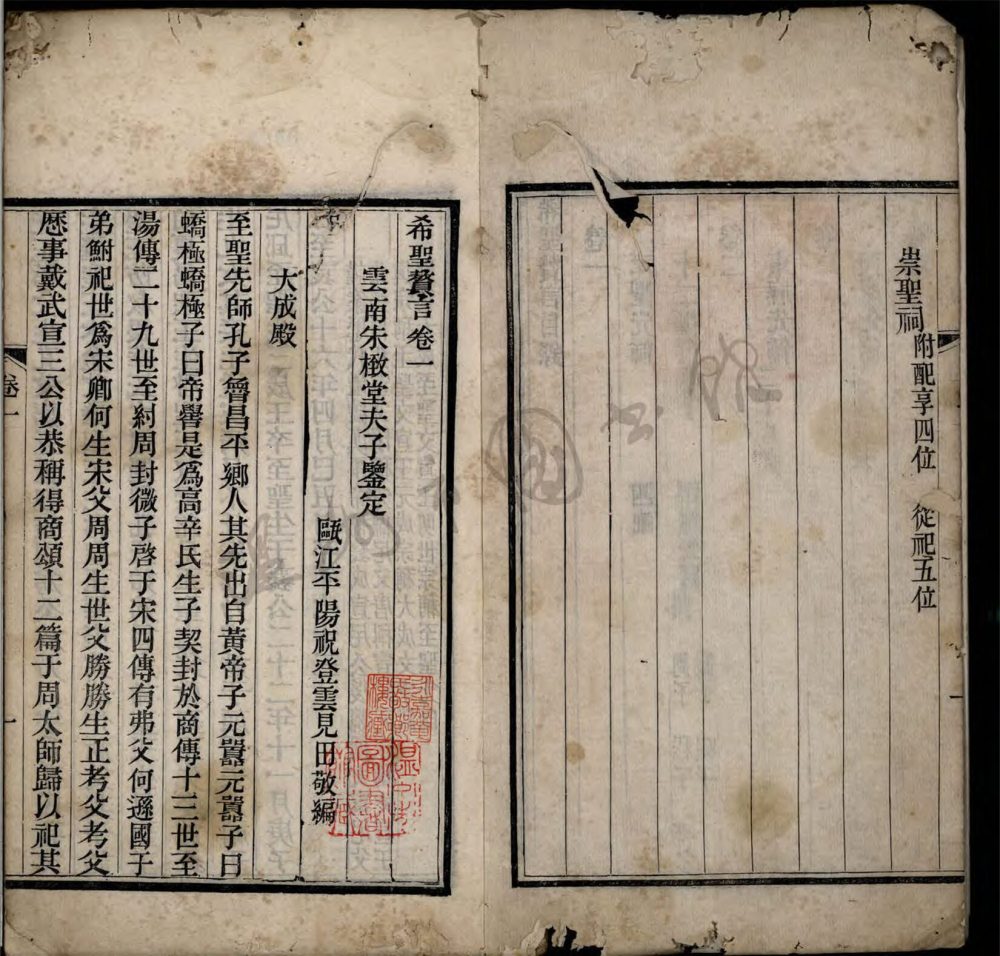 崇聖祠附配享四位　從祀五位
希聖贅言卷一
雲南朱㯋堂夫子鑒定
甌江平陽祝登雲見田敬編
大成殿
至聖先師孔子魯昌平鄉人其先出自黃帝子元囂元囂子曰
蟜極蟜極子曰帝嚳是爲高辛氏生子契封於商傳十三世至
湯傳二十九世至紂周封微子啓于宋四傳有弗父何遜國于
弟鮒祀世爲宋卿何生宋父周周生世父勝勝生正考父考父
歷事戴武宣三公以恭稱得商頌十二篇于周太師歸以祀其
卷一
一